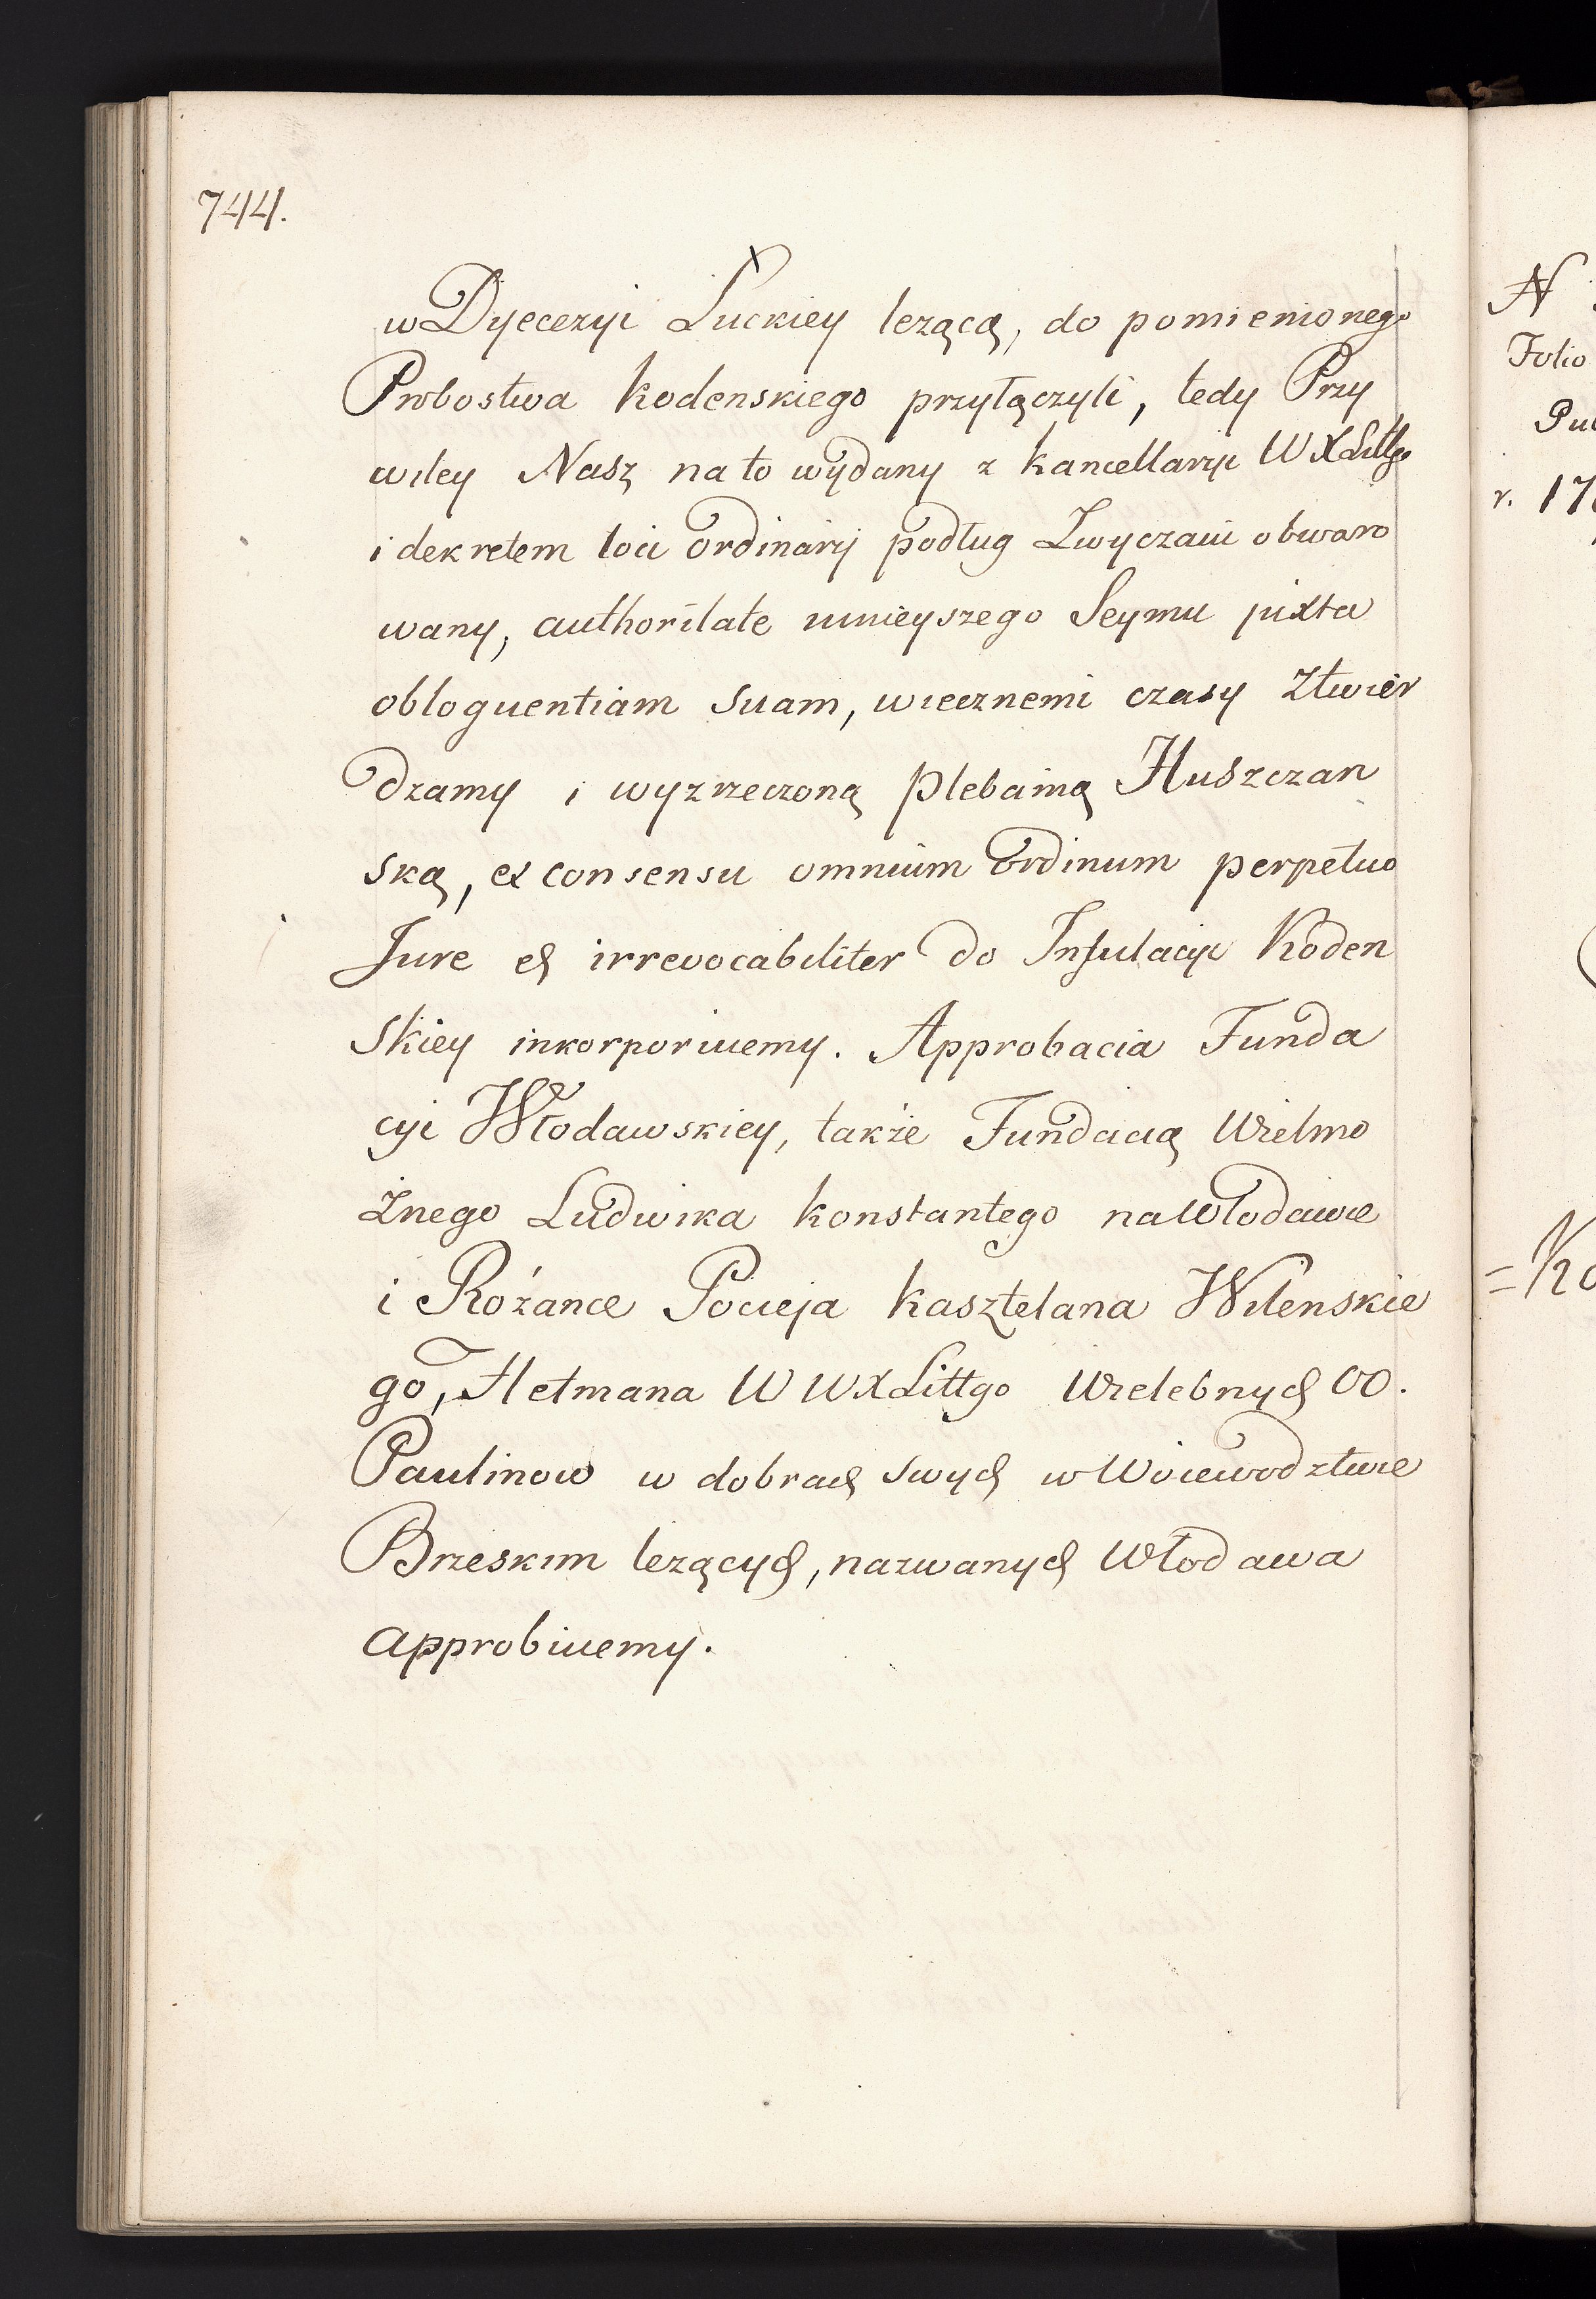 744.
w Dyecezyi Łuckiey lezącą, do pomienionego
Probostwa kodenskiego przyłączyli, tedy Przy
wiley Nasz na to wydany z kancellaryi WXLittgo
i dekretem loci ordinarij podług Zwyczaiu obwaro
wany, authoritate ninieyszego Seymu juxta
obloquentiam suam, wiecznemi czasy ztwier
dzamy i wyzrzeczoną plebanią Huszczan
ską, ex consensu omnium ordinum perpetuo
Jure et irrevocabiliter do Infulacyi Koden
skiey inkorporuiemy. Approbacia Funda
cyi Włodawskiey, także Fundacią Wielmo
żnego Ludwika konstantego na Włodawie
i Różance Pocieja kasztelana Wilenskie
go, Hetmana W WXLittgo Wielebnych OO.
Paulinow w dobrach swych w Woiewodztwie
Brzeskim lezących, nazwanych Włodawa
approbuiemy.
N
Folio
r. 17
= Ko